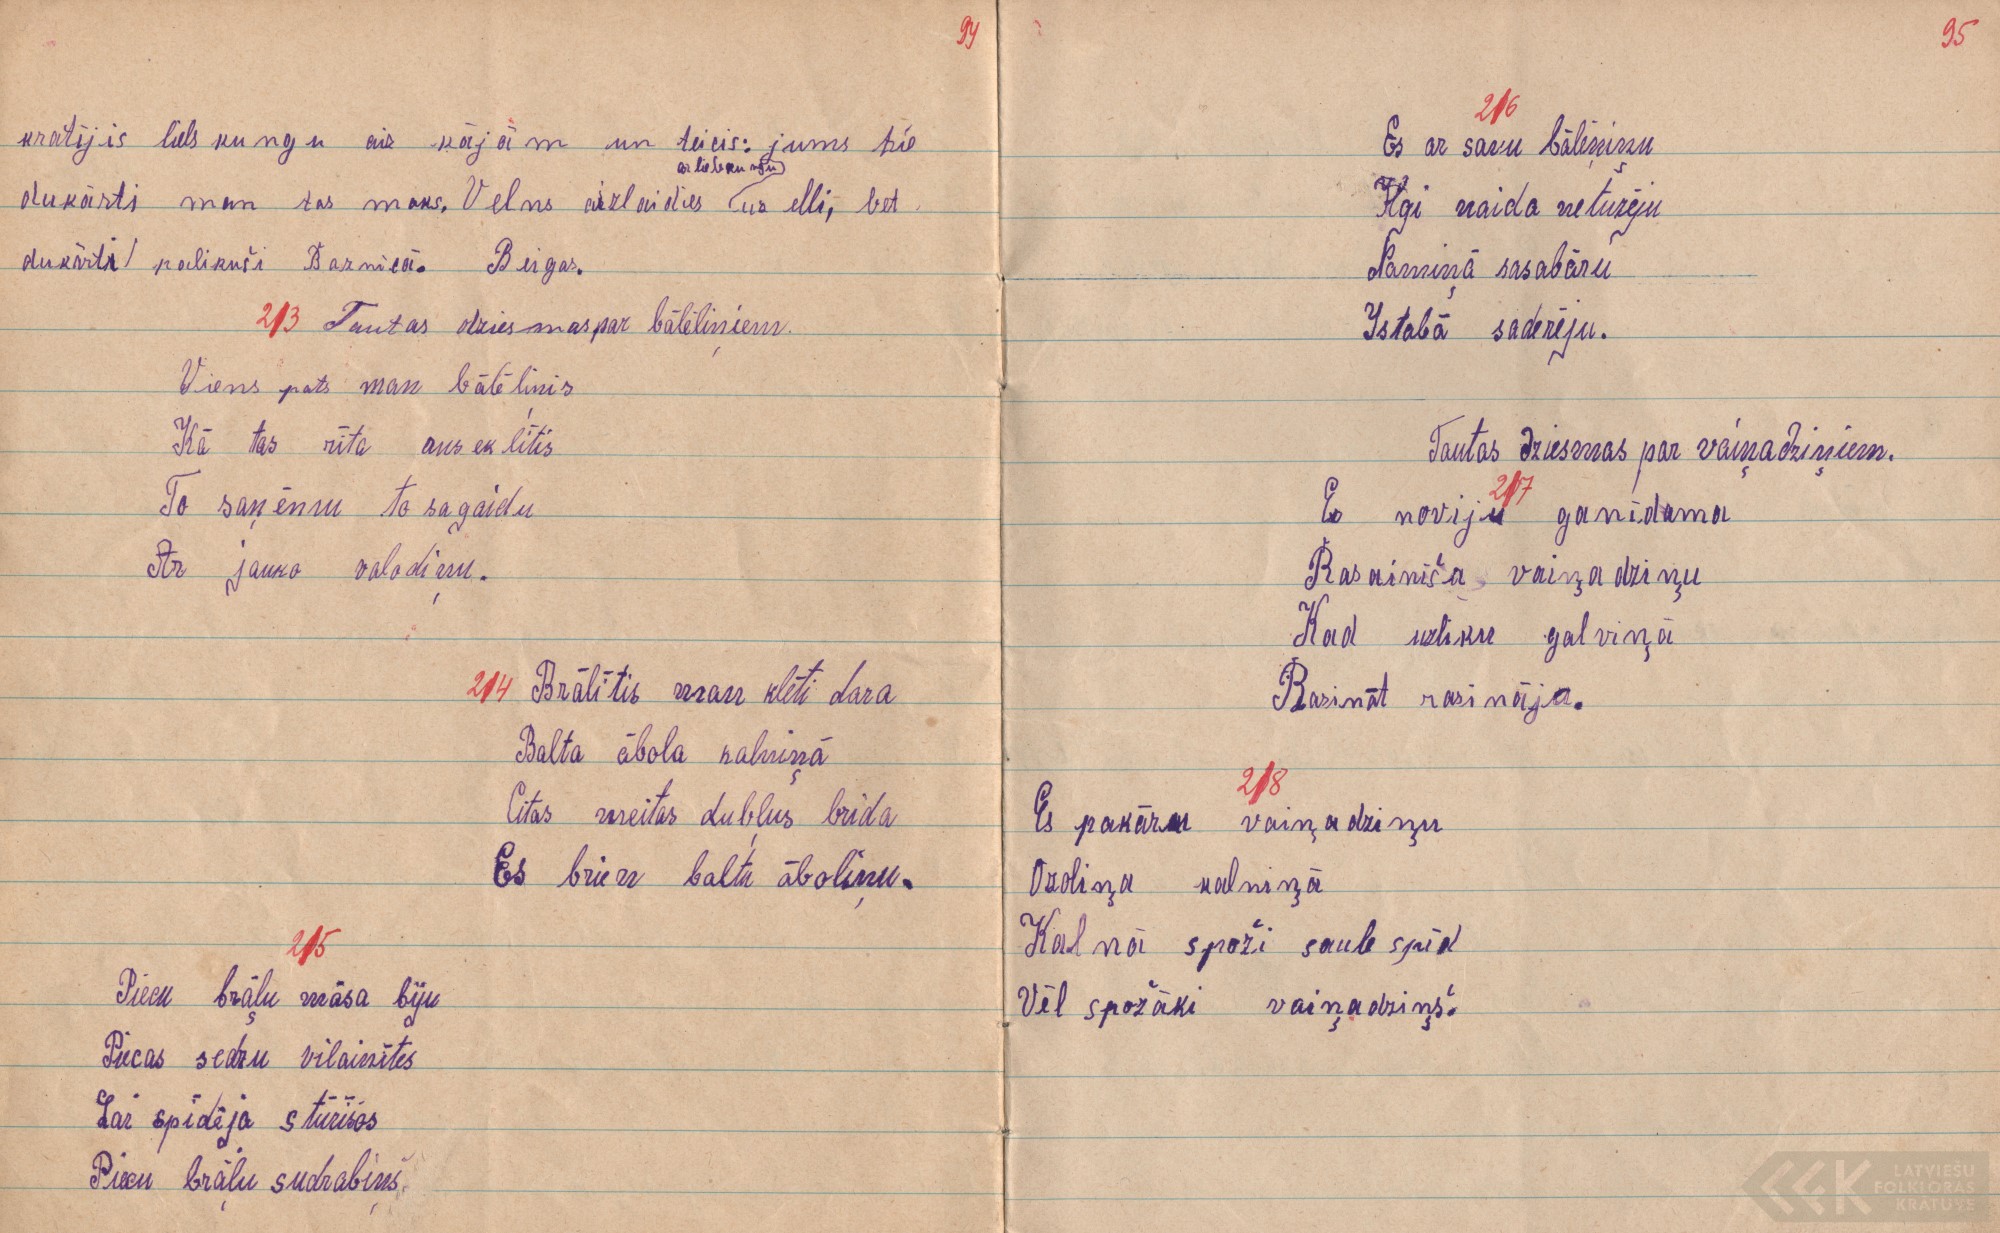 94
kratījis liels kungu aiz kājām un teicis: jums tie
ar lielskungu
dukārti man tas maks. Velns aizlaidies uz elli, bet
dukārti palikuši Baznicā. Beigas.
213 Tautas dziesmas par bāleliņiem.
Viens pats man bāleliņis
Kā tas rīta auseklītis
To saņēmu to sagaidu
Ar jauko valodiņu.
214 Brālītis man klēti dara
Balta ābola kalniņā
Citas meitas dubļus brida
Es brien baltu āboliņu.
215
Piecu brāļu māsa biju
Piecas sedzu vilainītes
Lai spīdēja stūrišos
Piecu brāļu sudrabiņš.
95
216
Es ar savu bāleniņu
Ilgi naida neturēju
Namiņā sasabāru
Istabā saderēju.
Tautas dziesmas par vaiņadziņiem.
217
Es noviju ganīdama
Rasainiša vaiņadziņu
Kad uzliku galviņā
Rasināt rasināja.
218
Es pakāru vaiņadziņu
Ozoliņa kalniņā
Kalnā spoži saule spīd
Vēl spožāki vaiņadziņš.
LATVIEŠU
FOLKLORAS
KRĀTUVE